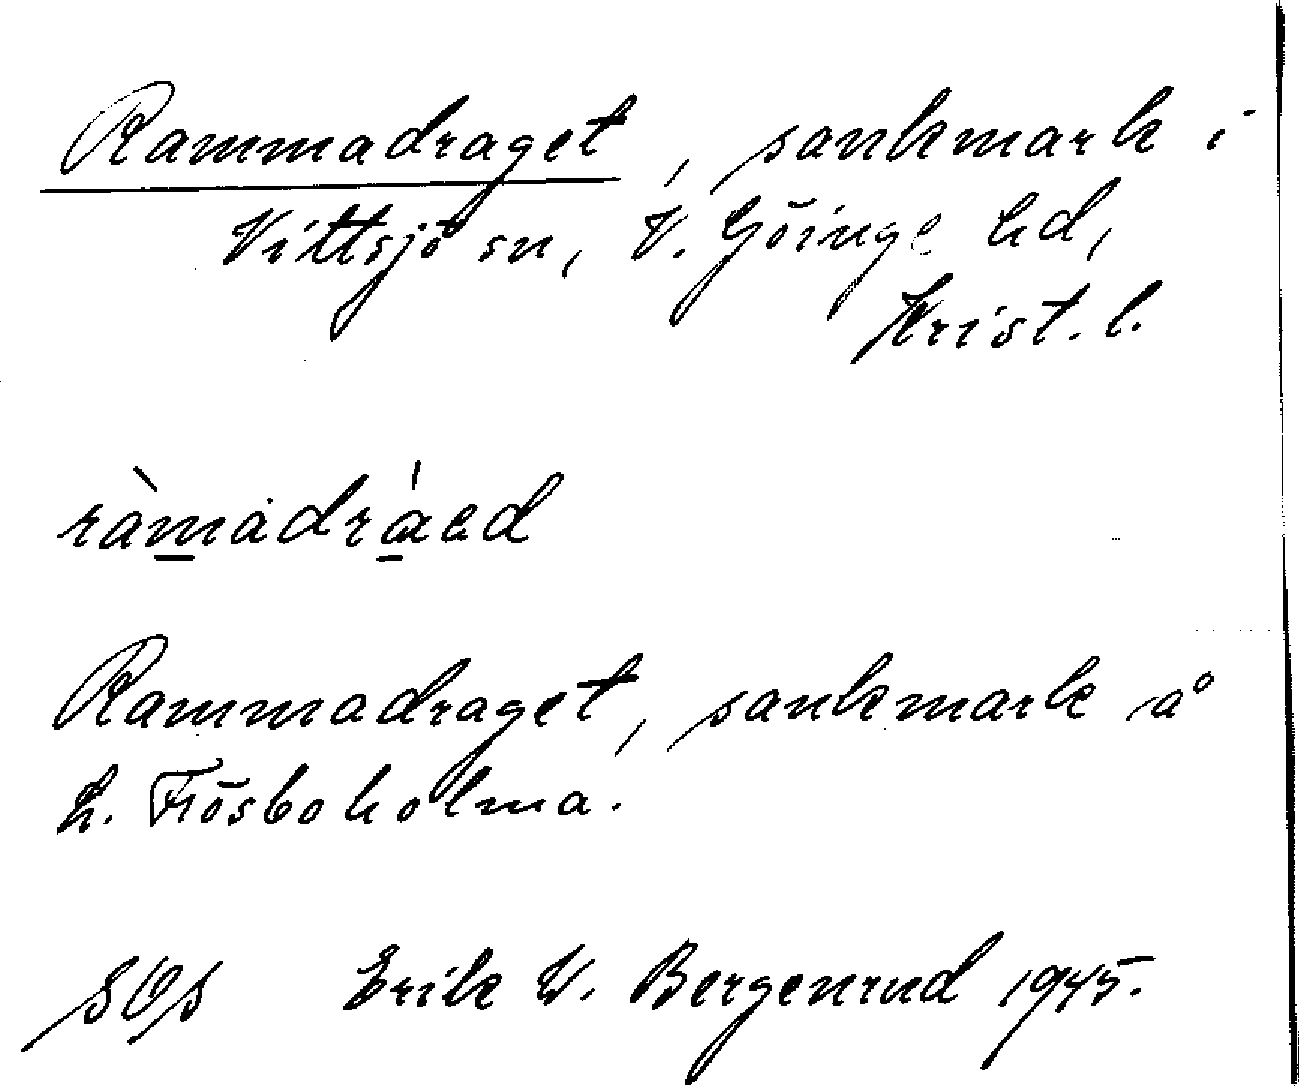 Rammadraget, sankmark i
Vittsjö sn, V. Göinge hd,
Krist. l.
ràmadráed
Rammadraget, sankmark å
L. Frösboholma.
SOS Erik W. Bergenrud 1945.